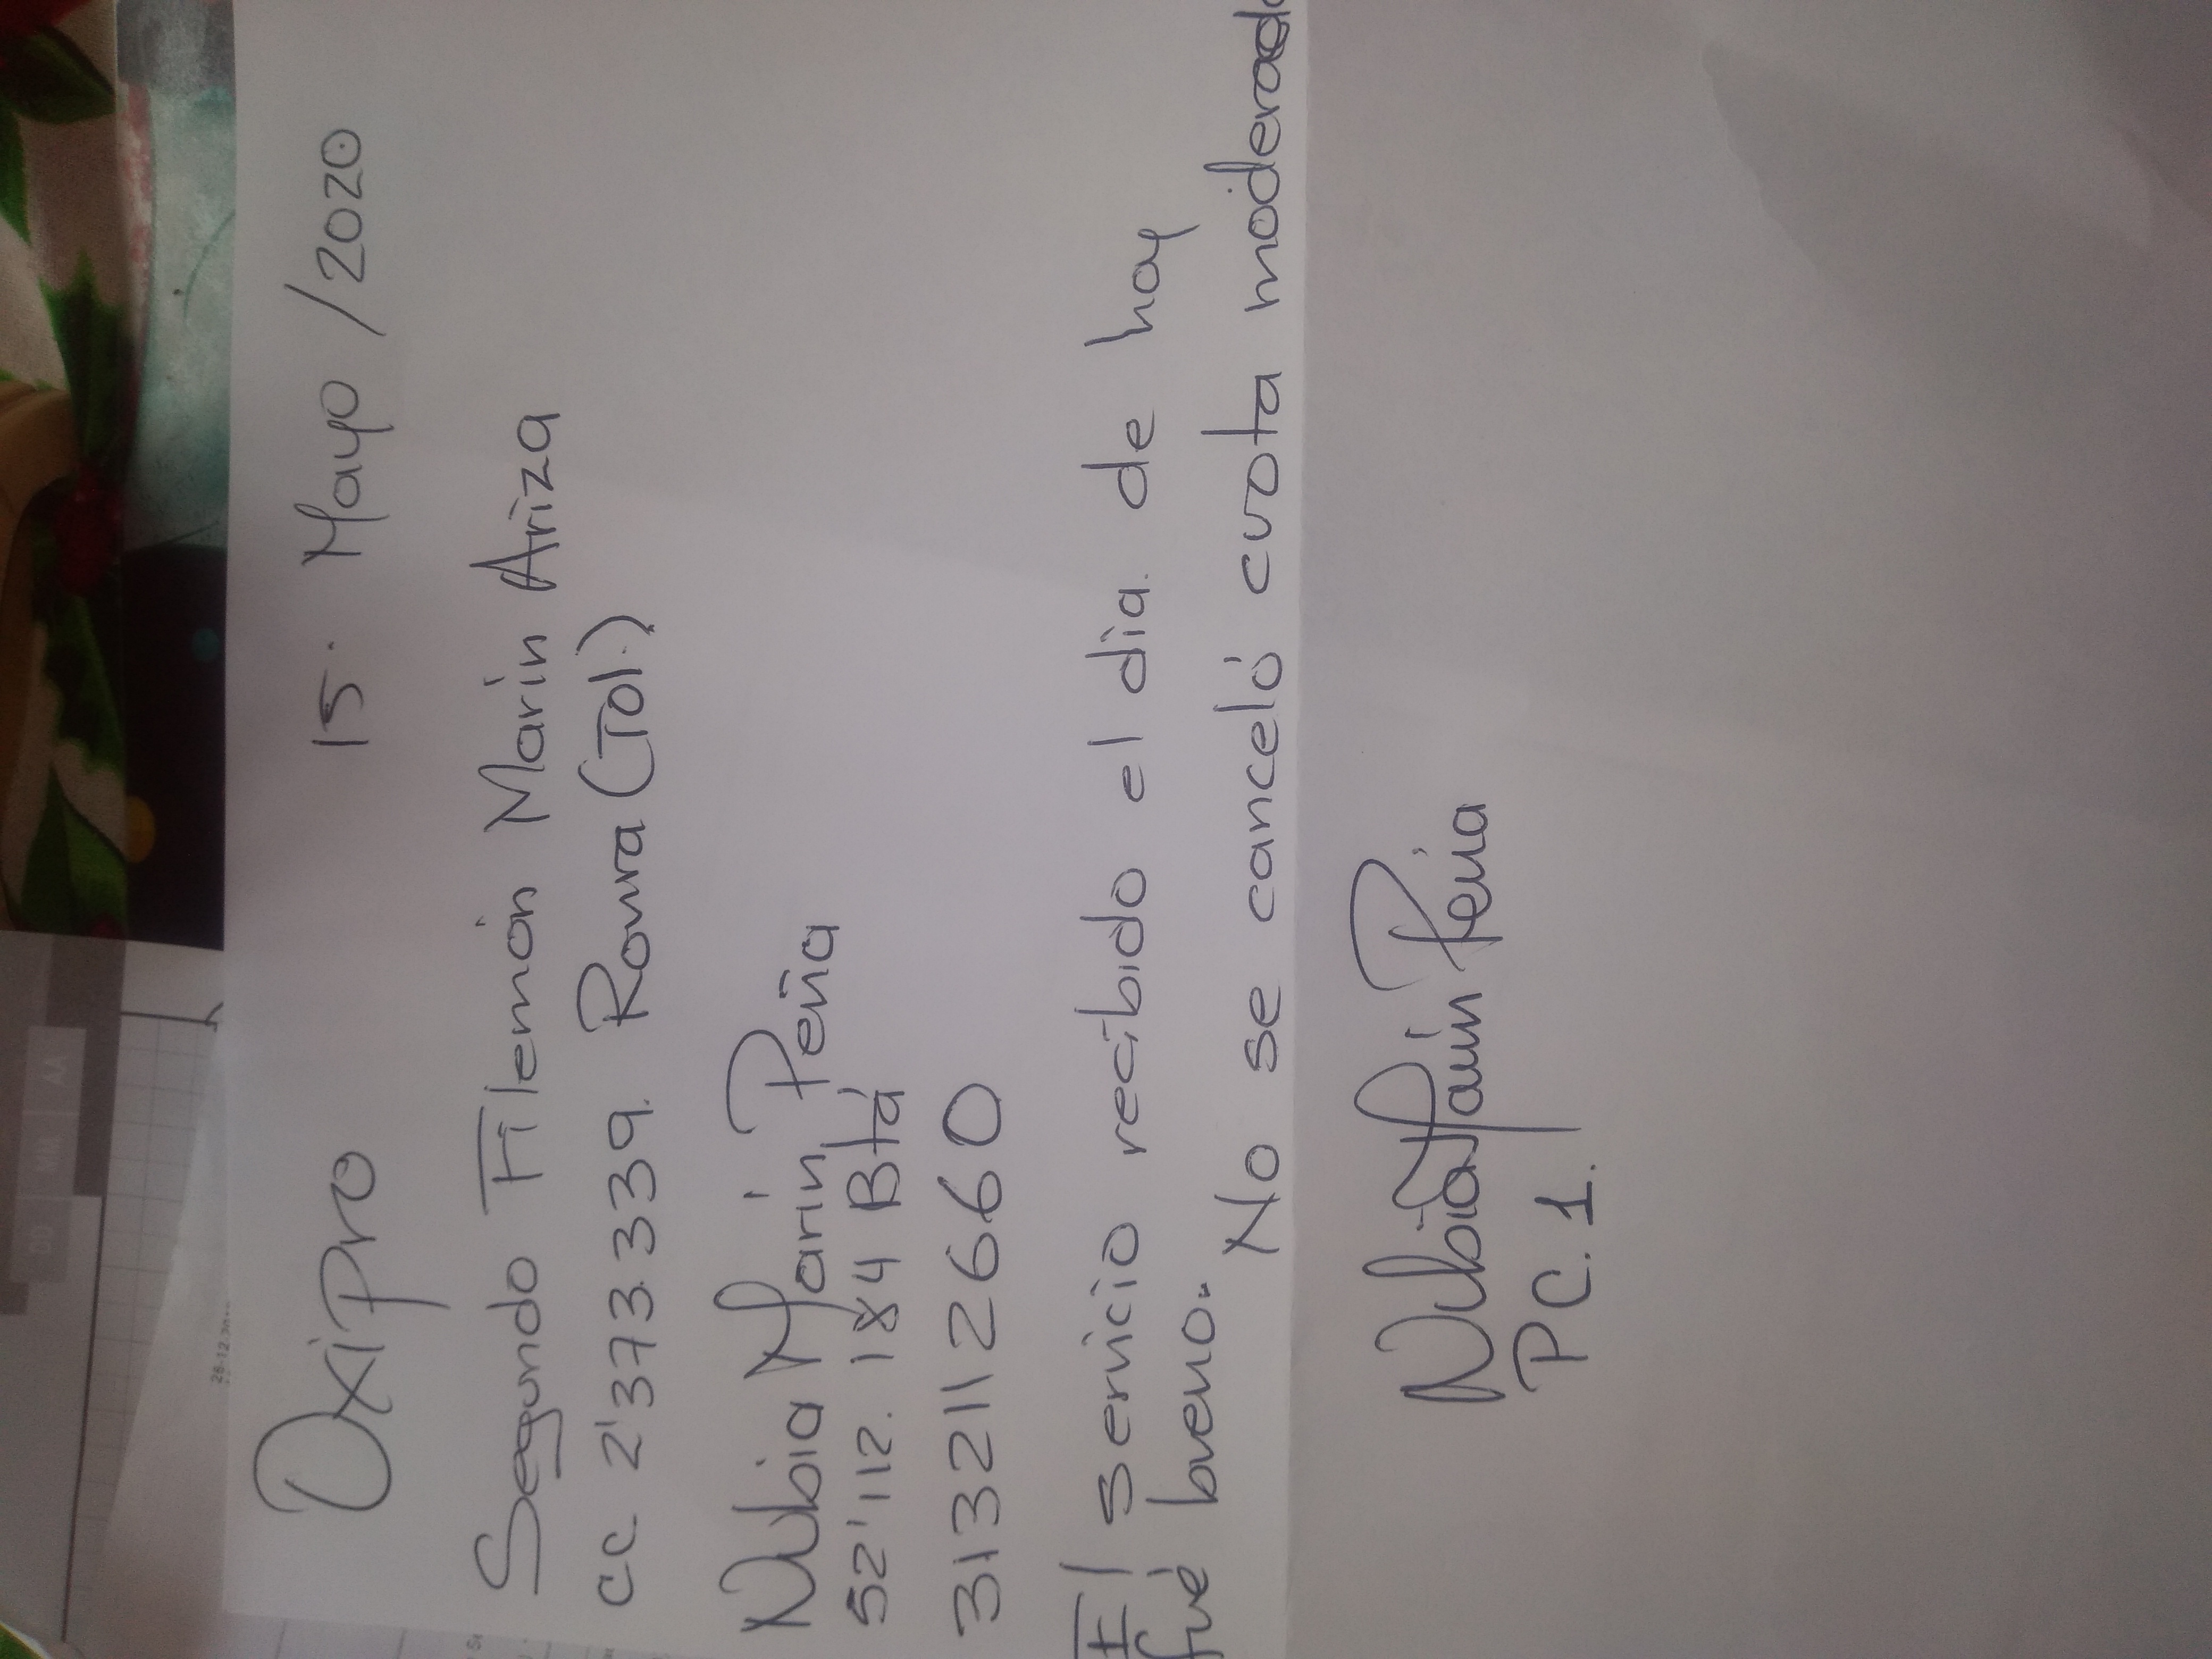 OxiPro 15. Mayo /2020
Segundo Filemón Marin Ariza
CC 2'373.339. Rovira (Tol.)
Nubia Marín Peña
52'112.184 Btá
3132112660
El servicio recibido el dia de hoy
fué bueno.
No se canceló cuota moderado
Nubia Marin Peña
P.C.1.
DD MM AA